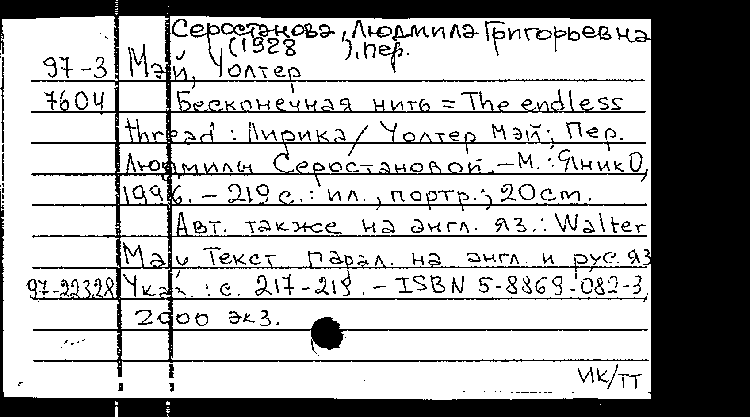 Серостанова, Людмила Григорьевна
(1928 ), пер.
97-3 Мэй, Уолтер
7604 Бесконечная нить = The endless
thread : Лирика / Уолтер Мэй; Пер.
Людмилы Серостановой. - М. : ЯникО,
1996. - 219 с. : ил., портр.; 20 см.
Авт. также на англ. яз. : Walter
May Текст парал. на англ. и рус. яз
97-22328 Указ. : с. 217-219. - ISBN 5-8869-082-3,
2000 экз.
ИК/тт